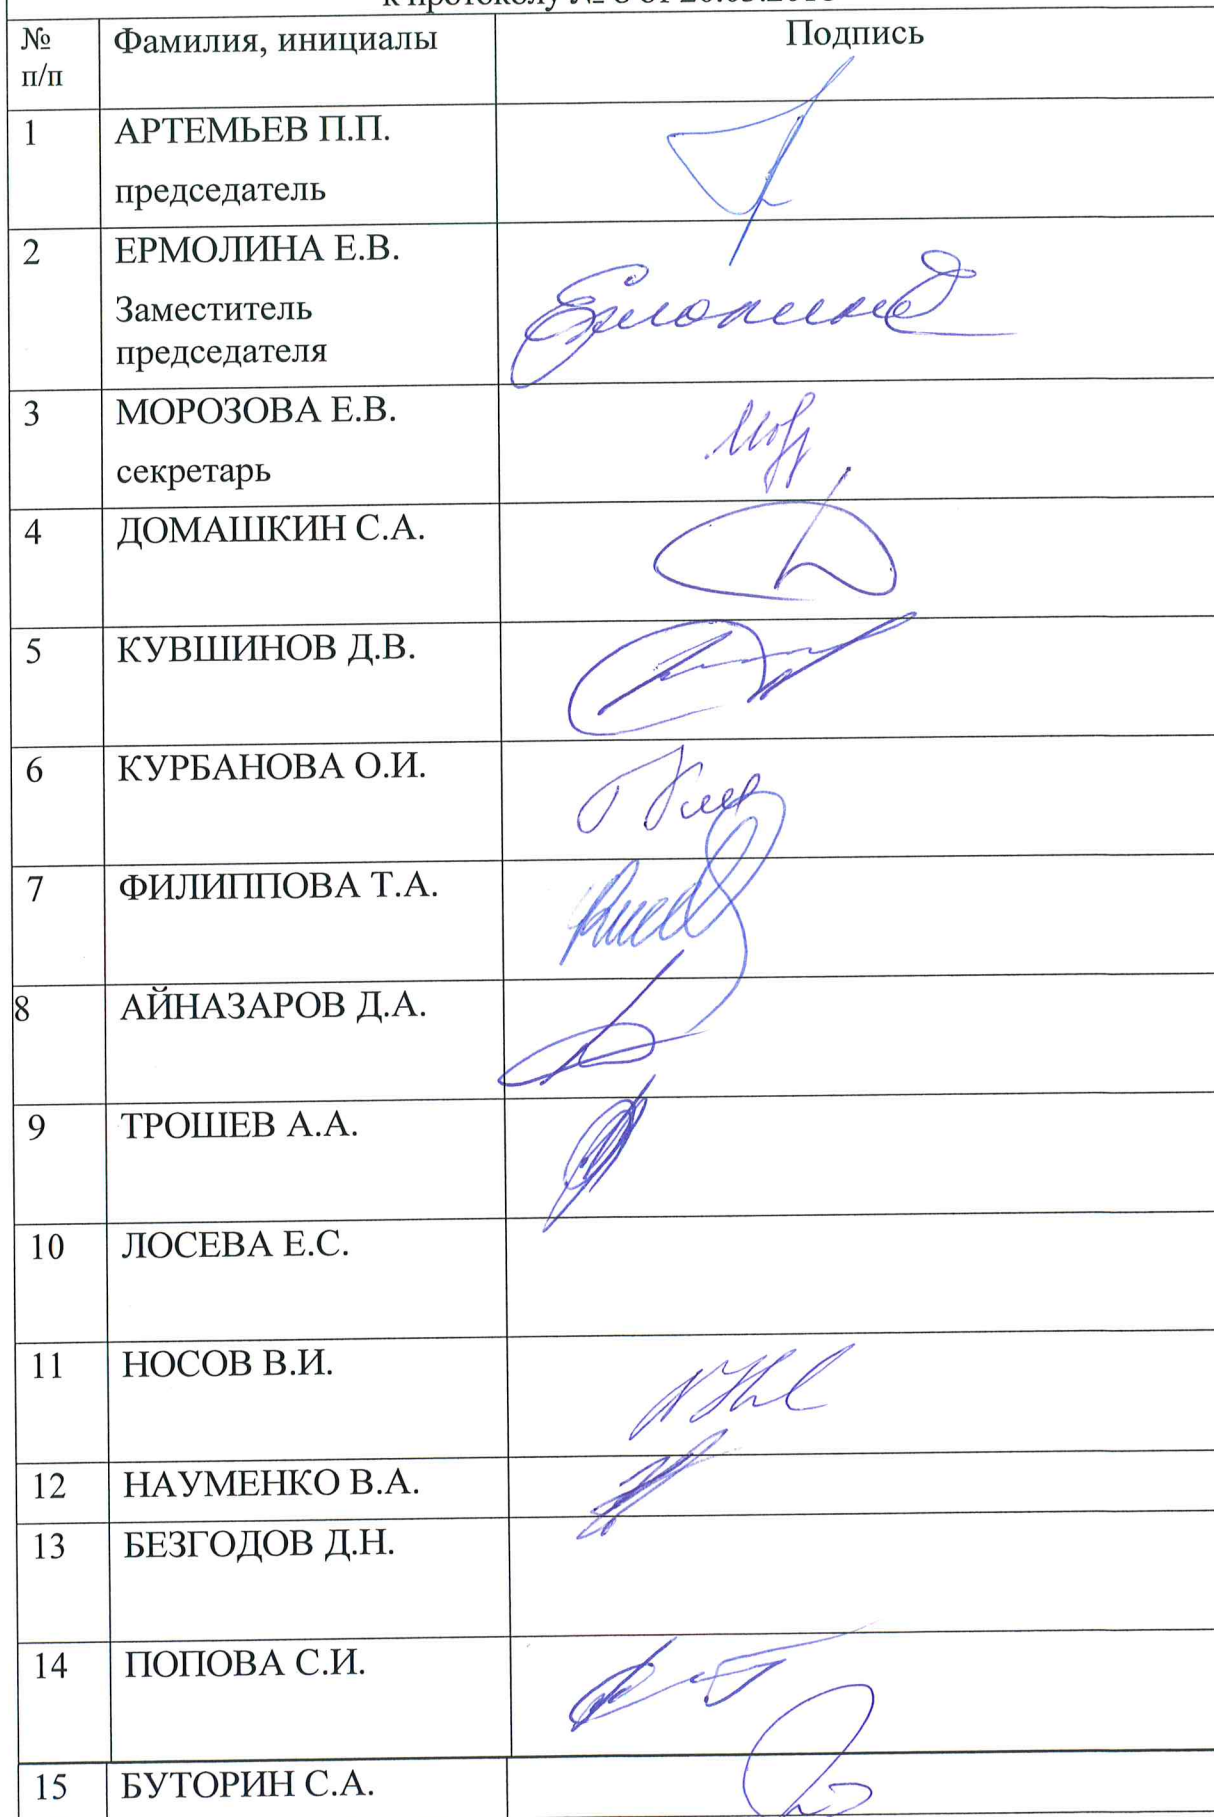 к протоколу №
№ п/п Фамилия, инициалы Подпись
1 АРТЕМЬЕВ П.П.
председатель
2 ЕРМОЛИНА Е.В.
Заместитель
председателя
Ермолина
3 МОРОЗОВА Е.В.
секретарь
4 ДОМАШКИН С.А.
5 КУВШИНОВ Д.В.
6 КУРБАНОВА О.И.
7 ФИЛИППОВА Т.А.
8 АЙНАЗАРОВ Д.А.
9 ТРОШЕВ А.А.
10 ЛОСЕВА Е.С.
11 НОСОВ В.И.
12 НАУМЕНКО В.А.
13 БЕЗГОДОВ Д.Н.
14 ПОПОВА С.И.
15 БУТОРИН С.А.